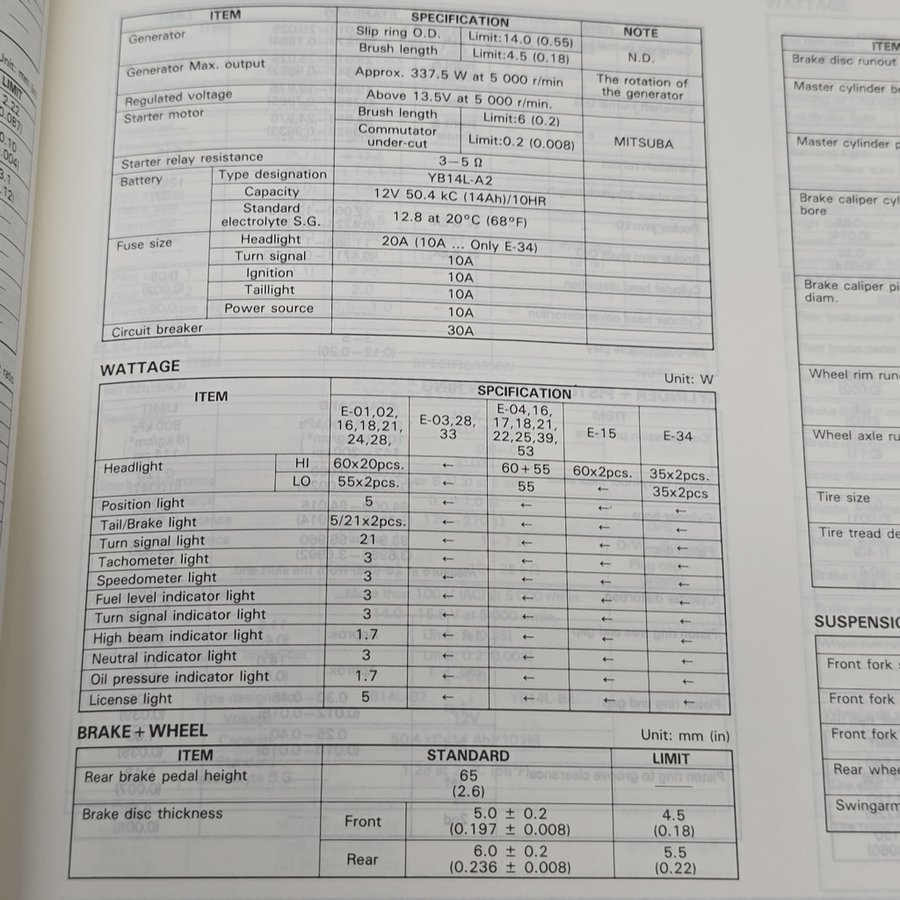 ITEM SPECIFICATION NOTE
Generator Slip ring O.D. Limit:14.0 (0.55) N.D.
Brush length Limit:4.5 (0.18)
Generator Max. output Approx. 337.5 W at 5 000 r/min The rotation of the generator
Regulated voltage Above 13.5V at 5 000 r/min.
Starter motor Brush length Limit:6 (0.2) MITSUBA
Commutator under-cut Limit:0.2 (0.008)
Starter relay resistance 3–5 Ω
Battery Type designation YB14L-A2
Capacity 12V 50.4 kC (14Ah)/10HR
Standard electrolyte S.G. 12.8 at 20°C (68°F)
Fuse size Headlight 20A (10A ... Only E-34)
Turn signal 10A
Ignition 10A
Taillight 10A
Power source 10A
Circuit breaker 30A
WATTAGE Unit: W
ITEM SPCIFICATION
E-01,02, 16,18,21, 24,28, E-03,28, 33 E-04,16, 17,18,21, 22,25,39, 53 E-15 E-34
Headlight HI 60x20pcs. ← 60+55 60x2pcs. 35x2pcs.
LO 55x2pcs. ← 55 ← 35x2pcs
Position light 5 ← ← ← ←
Tail/Brake light 5/21x2pcs. ← ← ← ←
Turn signal light 21 ← ← ← ←
Tachometer light 3 ← ← ← ←
Speedometer light 3 ← ← ← ←
Fuel level indicator light 3 ← ← ← ←
Turn signal indicator light 3 ← ← ← ←
High beam indicator light 1.7 ← ← ← ←
Neutral indicator light 3 ← ← ← ←
Oil pressure indicator light 1.7 ← ← ← ←
License light 5 ← ← ← ←
BRAKE + WHEEL Unit: mm (in)
ITEM STANDARD LIMIT
Rear brake pedal height 65 (2.6) ——
Brake disc thickness Front 5.0 ± 0.2 (0.197 ± 0.008) 4.5 (0.18)
Rear 6.0 ± 0.2 (0.236 ± 0.008) 5.5 (0.22)
ITEM
Brake disc runout
Master cylinder
Master cylinder
Brake caliper
bore
Brake caliper
diam.
Wheel rim
Wheel axle
Tire size
Tire tread
Front fork
Front fork
Front fork
Rear
LIMIT